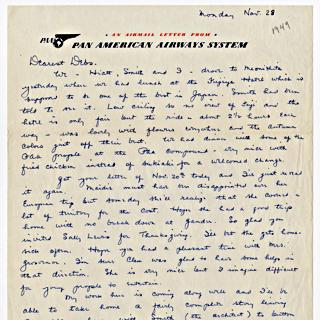 Monday Nov. 28
1949
• AN AIRMAIL LETTER FROM •
PAA
PAN AMERICAN AIRWAYS SYSTEM
Dearest Debs.
We - Hiatt, Smith and I - drove to
yesterday when we had lunch at the Fujiya Hotel which is
supposed to be one of the best in Japan. Smith had been
told to see it. Low ceiling so no view of Fuji and the
hotel is only fair but the ride - about 2½ hours each
way - was lovely with flowers everywhere and the autumn
colors just off their best. We had dinner with some of the
PAA people at the PAA compound - very nice with
fried chicken instead of sukiaki for a welcomed change.
Got your letter of Nov 20th today and I've just read
it again. must have been disappointed over her
European trip but someday she'll realize that she covered a
lot of territory for the cost. Hope she had a good trip
home with no break down at Gander. So glad you
invited Sally for Thanksgiving. I'll bet she gets home-
sick often. Hope you had a pleasant time with Mrs.
Grosvenor. I'm sure Cleo was glad to have some help in
that direction. She is very nice but I imagine difficult
for young people to entertain.
My work here is coming along well and I'll be
able to take home a fairly complete story leaving
with Smith (the architect) to button